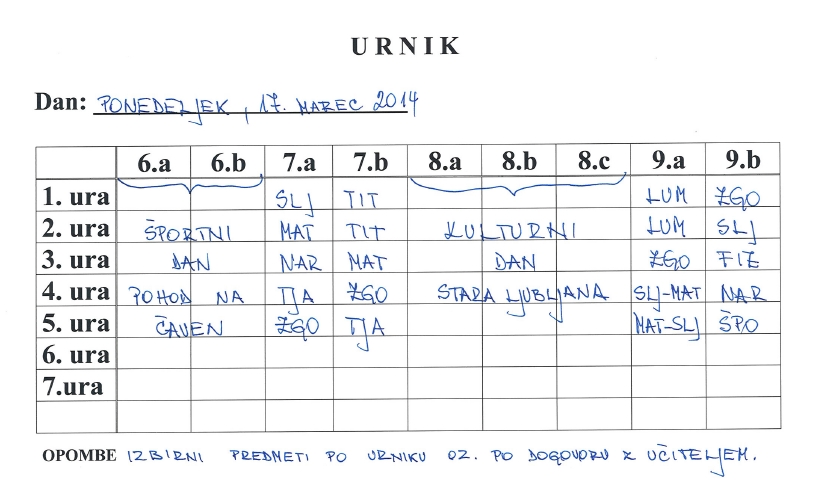 URNIK
Dan: PONEDELJEK, 17. MAREC 2014
6.a 6.b 7.a 7.b 8.a 8.b 8.c 9.a 9.b
1. ura SLJ TIT LUM ZGO
2. ura ŠPORTNI MAT TIT KULTURNI LUM SLJ
3. ura DAN NAR MAT DAN ZGO FIZ
4. ura POHOD NA TJA ZGO STARA LJUBLJANA SLJ-MAT NAR
5. ura ČAVEN ZGO TJA MAT-SLJ ŠPO
6. ura
7.ura
OPOMBE IZBIRNI PREDMETI PO URNIKU OZ. PO DOGOVORU Z UČITELJEM.